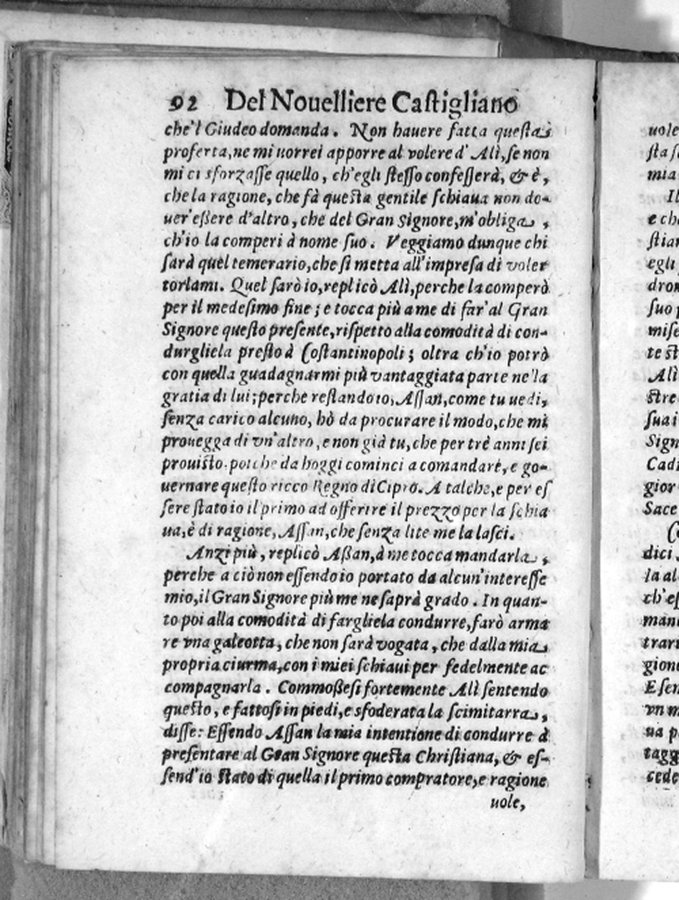 92 Del Nouelliere Castigliano
che'l Giudeo domanda. Non hauere fatta questa
proferta, ne mi uorrei apporre al volere d'Alì, se non
mi ci sforzasse quello, ch'egli stesso confesserà, & è,
che la ragione, che fà questa gentile schiaua non do-
uer'eßere d'altro, che del Gran Signore, m'obliga,
ch'io la comperi à nome suo. Veggiamo dunque chi
sarà quel temerario, che si metta all'impresa di voler
torlami. Quel sarò io, replicò Alì, perche la comperò
per il medesimo fine; e tocca più a me di far'al Gran
Signore questo presente, rispetto alla comodità di con-
durgliela presto à Costantinopoli; oltra ch'io potrò
con quella guadagnarmi più vantaggiata parte nella
gratia di lui; perche restando io, Assan, come tu uedi,
senza carico alcuno, hò da procurare il modo, che mi
prouegga di vn'altro, e non già tu, che per trè anni sei
prouisto. poiche da hoggi cominci a comandare, e go-
uernare questo ricco Regno di Cipro. A talche, e per es
sere stato io il primo ad offerire il prezzo per la schia
ua, è di ragione, Assan, che senza lite me la lasci.
Anzi più, replicò Aßan, à me tocca mandarla,
perche a ciò non essendo io portato da alcun'interesse
mio, il Gran Signore più me ne saprà grado. In quan-
to poi alla comodità di fargliela condurre, farò arma
re vna galeotta, che non sarà vogata, che dalla mia
propria ciurma, con i miei schiaui per fedelmente ac
compagnarla. Commoßesi fortemente Alì sentendo
questo, e fattosi in piedi, e sfoderata la scimitarra,
disse: Essendo Assan la mia intentione di condurre à
presentare al Gran Signore questa Christiana, & es-
send'io stato di quella il primo compratore, e ragione
uole,
uole
sta s
mia
Il
e che
stian
egli
dron
suo p
mise
te st
Alì
stre
suai
Sign
Cadi
gior
Sace
dici
la al
ch'es
mand
trarr
gione
E sen
vn m
ua p
tagg
cede